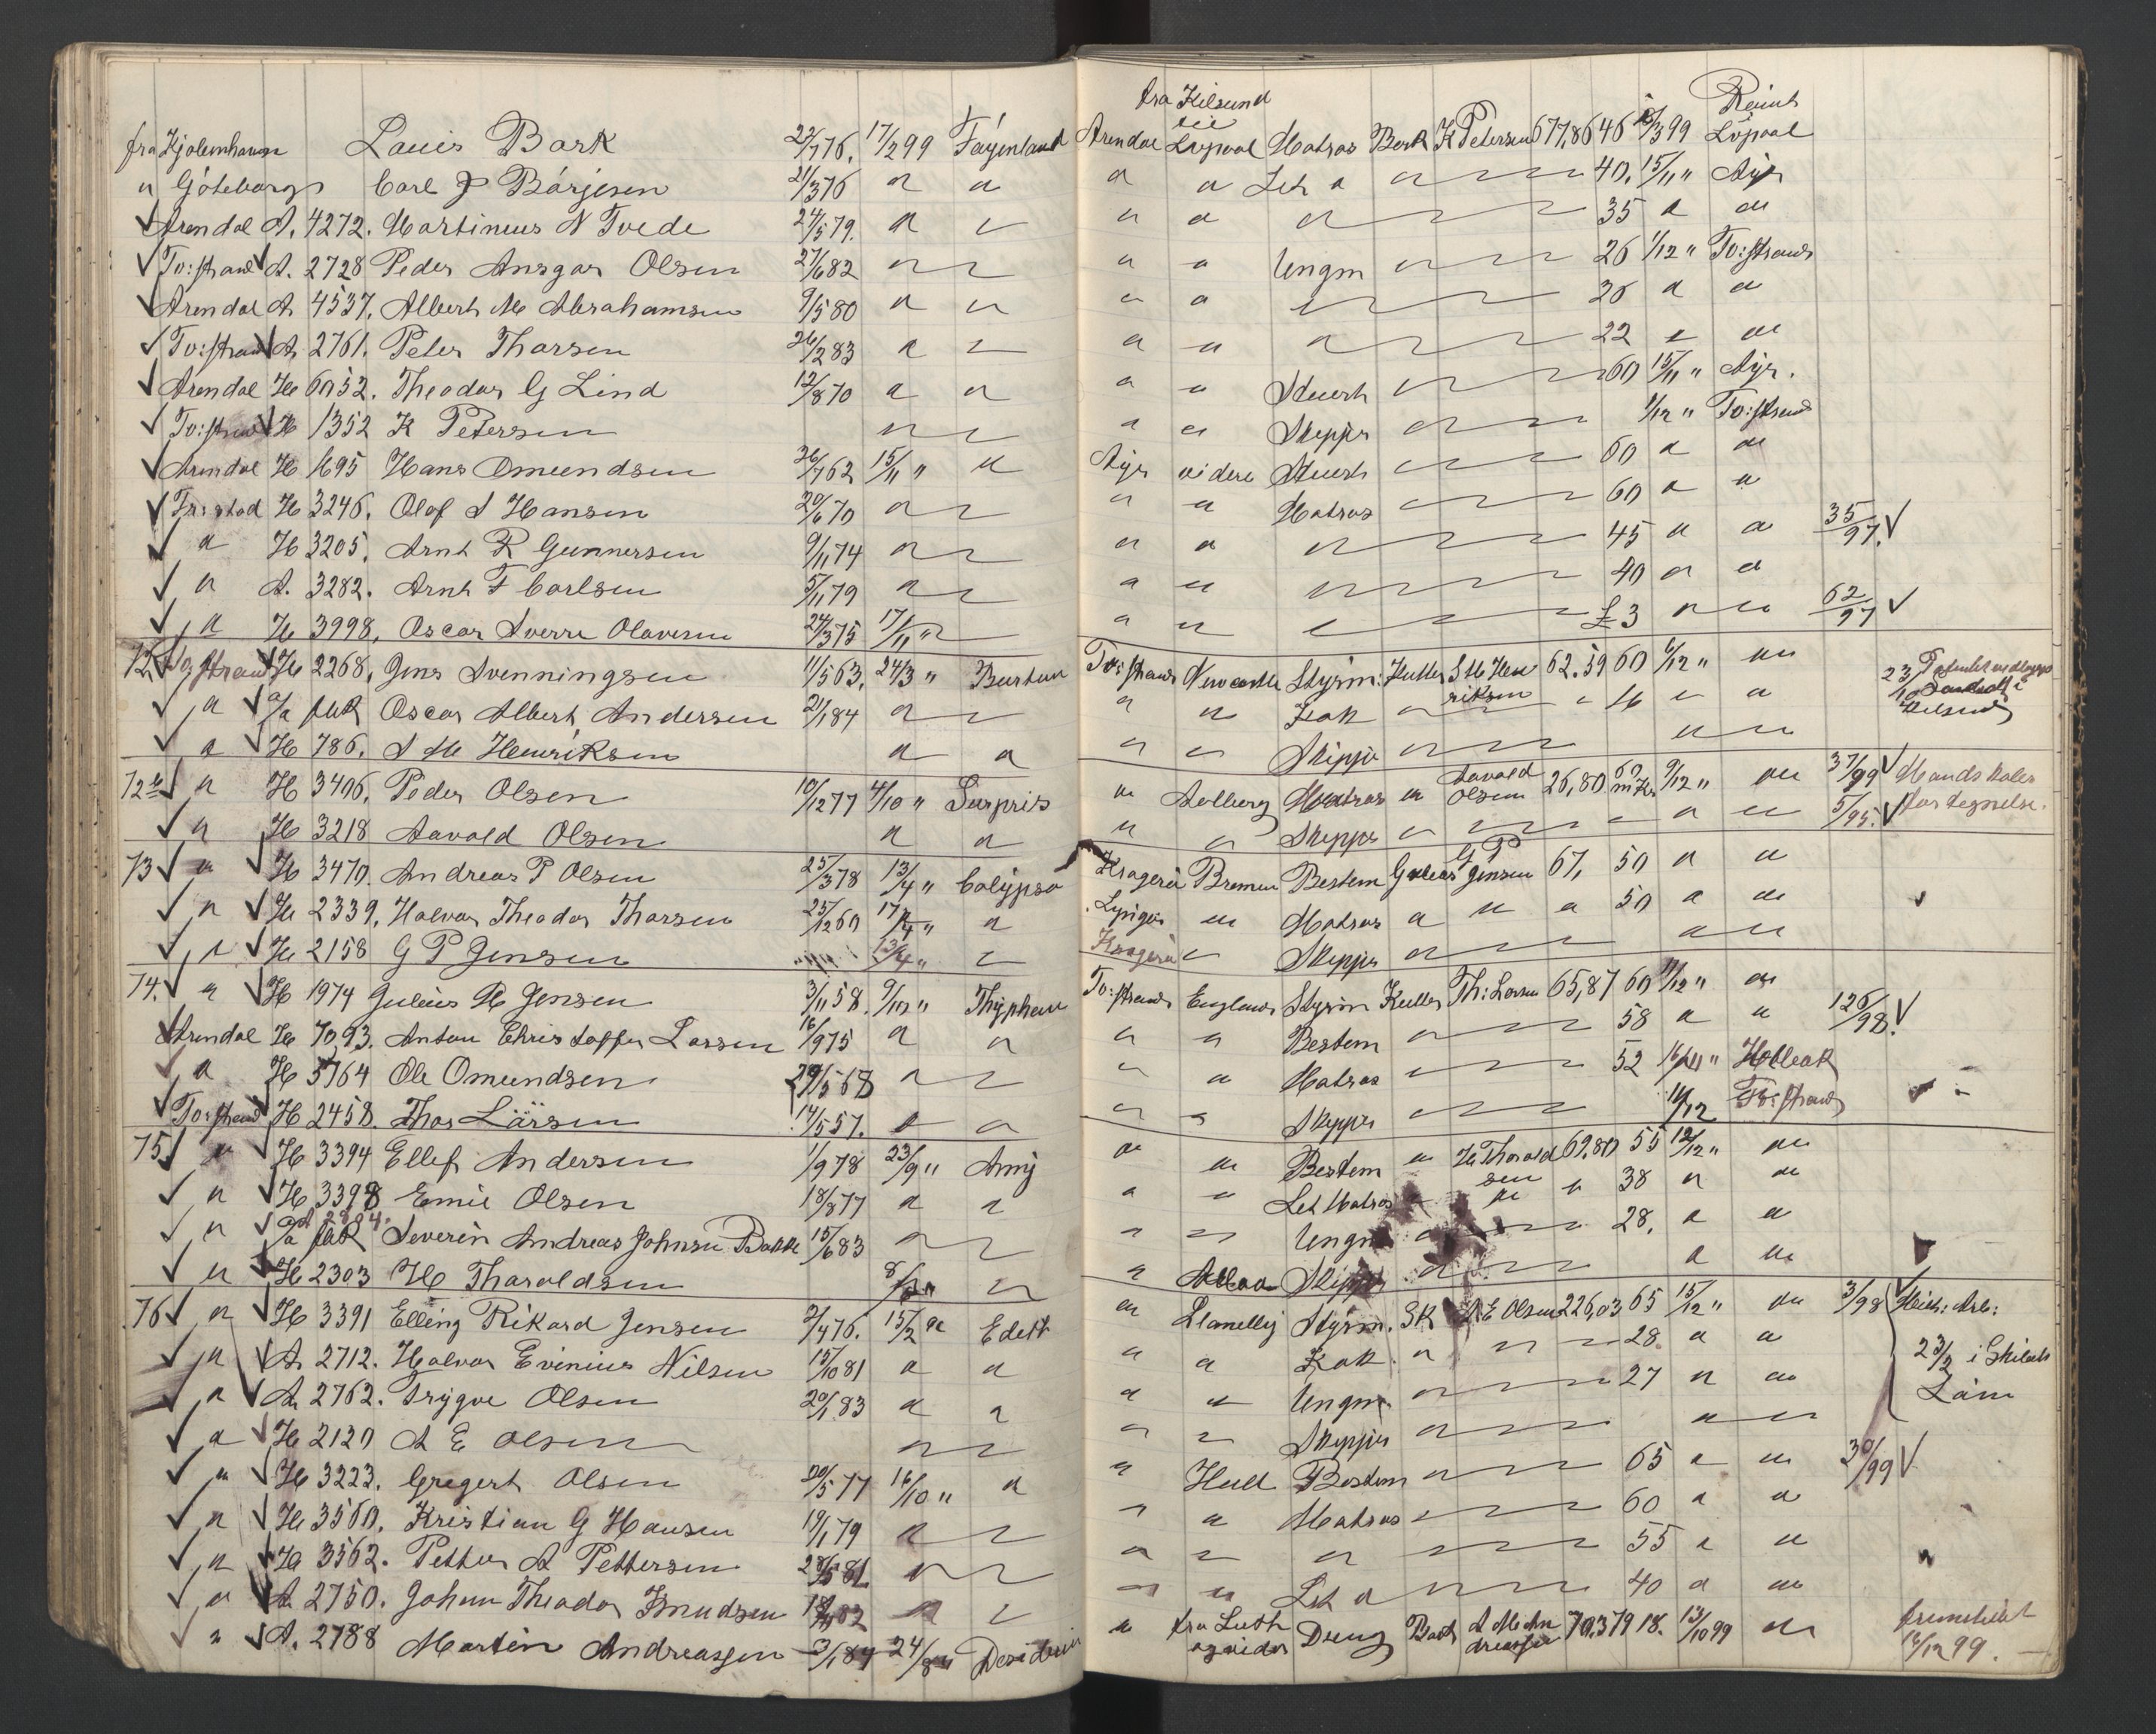 fra Kjobenhavn Louis Bork 22/776. 17/299 Fayenland Arendal fra Kilsund til Livpool Matros Bark K Petersen 677,86 46 3 99 Löpool
" Göteborg Carl J Börjesen 21/376 " " " " Let " " 40. 15/11 " Ayr
Arendal A. 4272. Martinius N Tvede 24/579. " " " " " 35 " "
Tv:strand A. 2728 Peder Ansgar Olsen 27/682 " " " " Ungm " 26 1/12 " Tv:strand
Arendal A 4537. Albert M Abrahamsen 9/580 " " " " " 26 " "
Tv:strand A 2761. Peter Thorsen 26/283 " " " " " 22 " "
Arendal H 6052. Theodor G Lind 12/870 " " " " Stuert " 60 15/11 " Ayr.
Tv:strand H 1352 K Petersen " " " " Skipper " 1/12 " Tv:strand
Arendal H 1695 Hans Omundsen 26/762 15/11 " " Ayr videre Stuert " 60 " "
Fr:stad H 3246. Olaf A Hansen 20/670 " " " " Matros " 60 " "
" H 3205. Arnt R Gunnersen 9/1174 " " " " " 45 " " 35/97.
" A. 3282. Arnt F Carlsen 5/1179 " " " " " 40 " "
" H 3998. Oscar Sverre Olavesen 24/375 17/11 " " " " £3 " " 62/97
72 Tv:strand H 2268. Jens Svenningsen 11/563. 24/3 " Burtun Tv:strand Newcastle Styrm: Kutter S M Henriksen 62.59 60 6/12 " " 23/10 Kilsund
" Oscar Albert Andersen 21/184 " " " " Kok " " 16 " "
" H 786. S M Henriksen " " " " Skipper " " "
72b " H 3406. Peder Olsen 10/1277 4/10 " Surpris " Aalborg Matros " Aavald Olsen 26,80 60 9/12 " " 37/99 Mandskabs
" H 3218 Aavald Olsen " " " " Skipper " " " " 5/95. fortegnelse.
73 " H 3470. Andreas P Olsen 25/378 13/4 " Calypso Kragerö Bremen Bestem Galeas G P Jensen 67, 50 " "
" H 2339. Halvor Theodor Thorsen 25/1260 17/4 " " Lyngör " Matros " " " 50 " "
" H 2158 G P Jensen 13/4 " " Kragerö " Skipper " " "
74. " H 1974 Julius M Jensen 3/1158. 9/10 " Thyphon Tv:strand England Styrm Kutter Th: Larsen 65,87 60 11/12 " "
Arendal H 7093. Anton Christoffer Larsen 16/975 " " " " Bestem " 58 " " 126/98.
" H 5764 Ole Omundsen 29/568 " " " " Matros " 52
Tv:strand H 2458. Thos Larsen 14/557. " " " " Skipper " 11/12 Tv:strand
75 " H 3394 Ellef Andersen 1/978 23/9 " Amy " " Bestem " H Thoroldsen 69.80 55 12/12 " "
" H 3398 Emil Olsen 18/877 " " " " Let Matros " " " 38 " "
" A 2884. Severin Andreas Johnsen Bakke 15/683 " " " " Ungm " 28. " "
" H 2303 H Tharaldsen " " Skipper " " "
76 " H 3391 Elling Rikard Jensen 2/476. 15/2 " Edett " Llanelly Styrm. Sk A E Olsen 226,03 65 15/12 " " 3/98
" A 2712. Halvor Evinius Nilsen 15/1081 " " " " Kok " " 28 " " 23/2 i
" A 2762. Trygve Olsen 20/183 " " " " Ungm " 27 " "
" H 2120 A E Olsen " " " " Skipper " " "
" H 3223. Gregert Olsen 20/577 16/10 " " " Hull Bestem " 65 " " 30/99
" H 3560. Kristian G Hansen 19/179 " " " " Matros " 60 " "
" H 3562. Petter A Pettersen " " " " " 55 " "
" A 2750. Johan Theodor Knudsen " " " " Let " " 40 " "
" A. 2788 Martin Andreassen 2/184 24/8 " " fra Leith og vider Dreng Bark A M Andreassen 18. 13/10 99 " fremstillet 16/12 99.